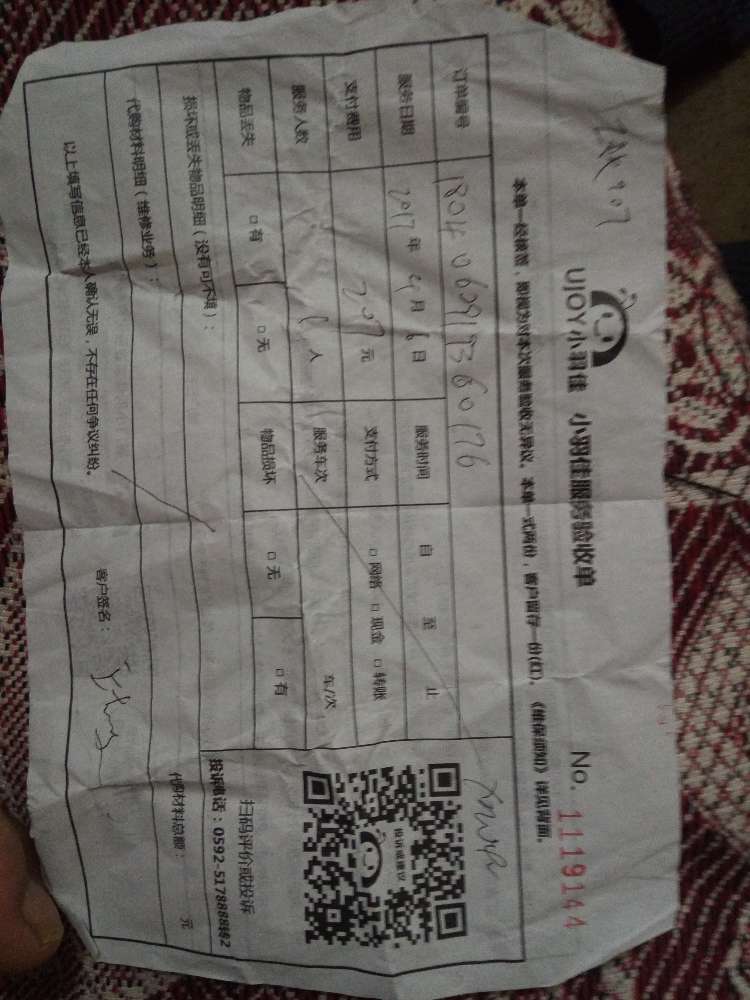 UJOY小羽佳 小羽佳服务验收单 No. 1119144
本单一经核签，即视为对本次服务验收无异议。本单一式两份，客户留存一份(红)。《维保须知》详见背面。
订单编号
服务日期 2017年 4月 6日 服务时间 自 至 止
支付费用 207元 支付方式 □网络 □现金 □转账
服务人数 人 服务车次 车/次
物品丢失 □有 □无 物品损坏 □无 □有
投诉或建议
扫码评价或投诉
投诉电话：0592-5178888转2
损坏或丢失物品明细（没有可不填）：
代购材料明细（维修业务）： 代购材料总额： 元
以上填写信息已经本人确认无误，不存在任何争议纠纷。 客户签名：